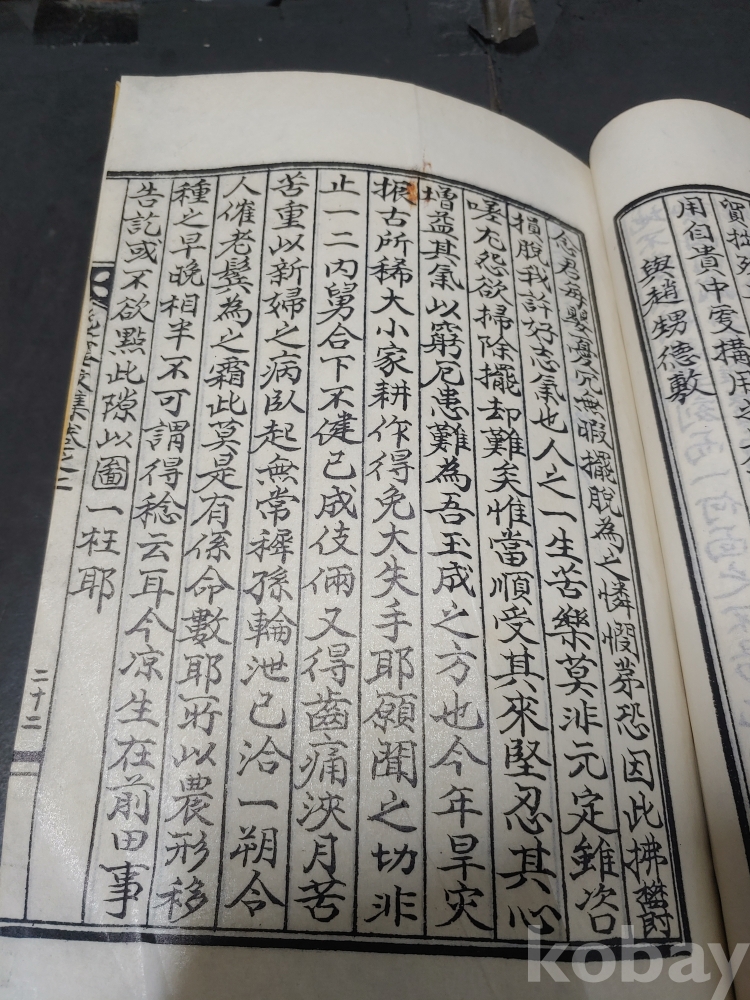 用自貴中雯搆用
與趙甥德敷
念君每嬰憂冗無暇擺脫為之憐憫苐恐因此拂鬱
損脫我許好志氣也人之一生苦樂莫非元定雖咨
嗟尤怨欲掃除擺却難矣惟當順受其來堅忍其心
增益其氣以窮厄患難為吾玉成之方也今年旱灾
振古所稀大小家耕作得免大失手耶願聞之切非
止一二內舅合下不健已成伎倆又得齒痛浹月苦
苦重以新婦之病臥起無常稺孫輪泄已洽一朔令
人催老鬂為之霜此莫是有係命數耶所以農形移
種之早晚相半不可謂得稔云耳今凉生在前田事
告訖或不欲點此隙以圖一枉耶
集卷之二
二十二
kobay